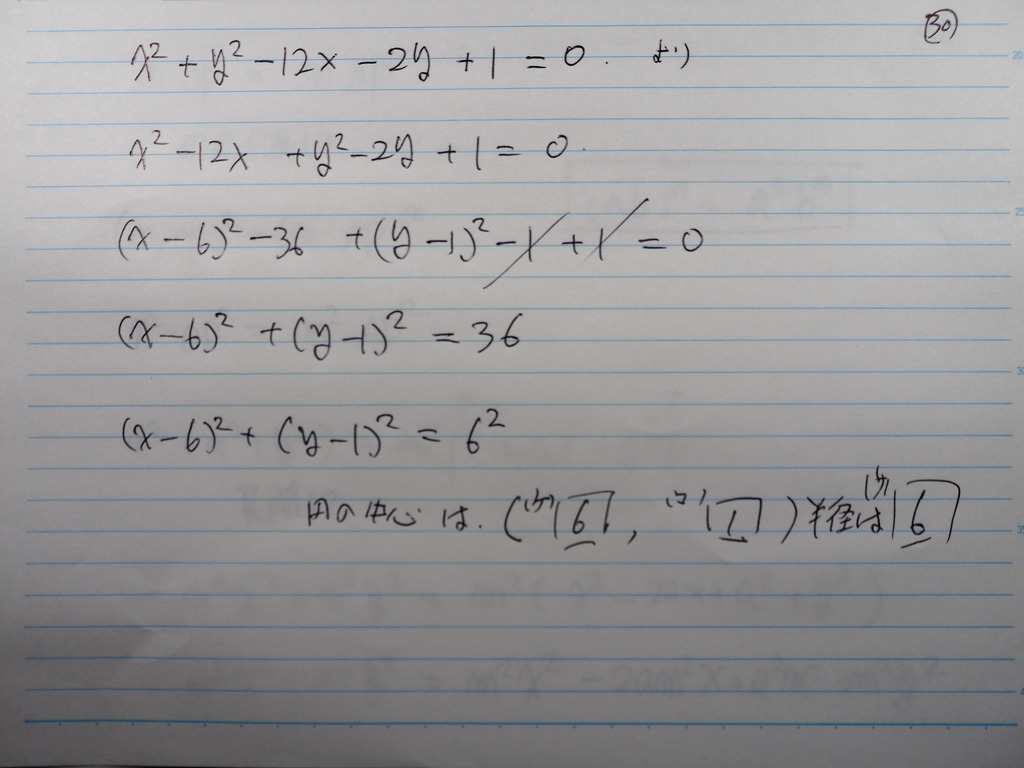 (30)
x² + y² - 12x - 2y + 1 = 0. より
x² - 12x + y² - 2y + 1 = 0.
(x - 6)² - 36 + (y - 1)² - 1 + 1 = 0
(x - 6)² + (y - 1)² = 36
(x - 6)² + (y - 1)² = 6²
円の中心は. ( 6 , 1 ) 半径は 6